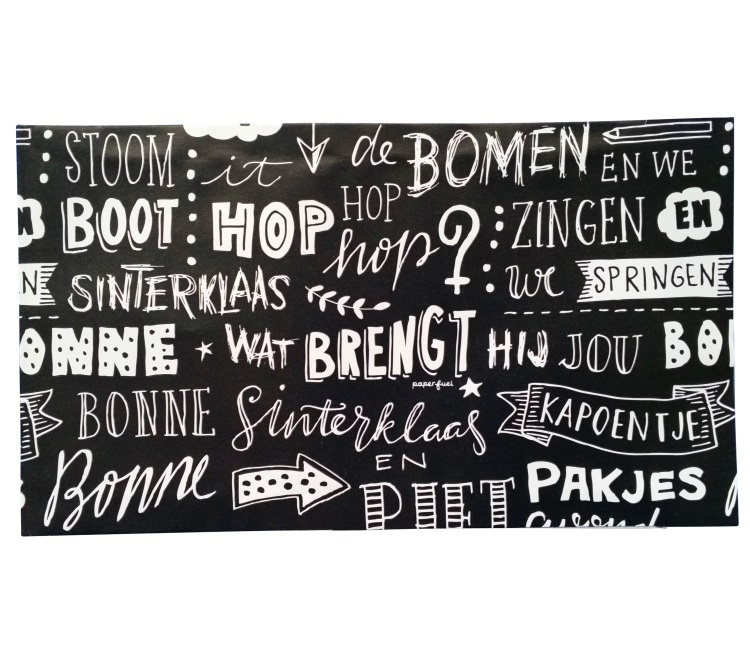 STOOM it de BOMEN EN WE
BOOT HOP HOP hop? ZINGEN EN
SINTERKLAAS We SPRINGEN
ONNE WAT BRENGT HIJ JOU BO
paperfuel
BONNE Sinterklaas KAPOENTJE
Bonne EN PIET PAKJES
avond